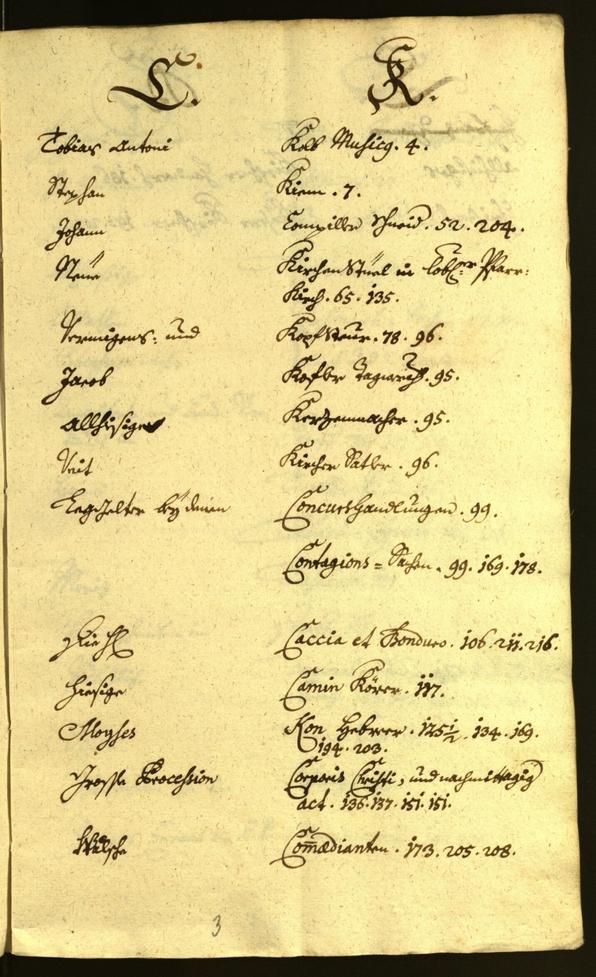 C. K.
Tobias Antoni Kolb Musicq. 4.
Stephan Kiem. 7.
Johann Schneid. 52. 204.
Neüe KirchenStüel in löbl:er Pfarr:
Kirch. 65. 135.
Vermigens: und KopfSteür. 78. 96.
Jacob Kofler Tagwerch. 95.
Allhisige Kerzenmacher. 95.
Veit Kircher Satler. 96.
bey denen Concurshandlungen. 99.
Contagions = Sachen. 99. 169. 178.
Caccia et Bonduro. 106. 211. 216.
hiesige Camin Körer. 117.
Aloyses Kon Hebreer. 125 1/2. 134. 169.
194. 203.
Grosse Procession Corporis Christi, und nachmittägig
act. 136. 137. 151. 151.
Wälsche Comœdianten. 173. 205. 208.
3